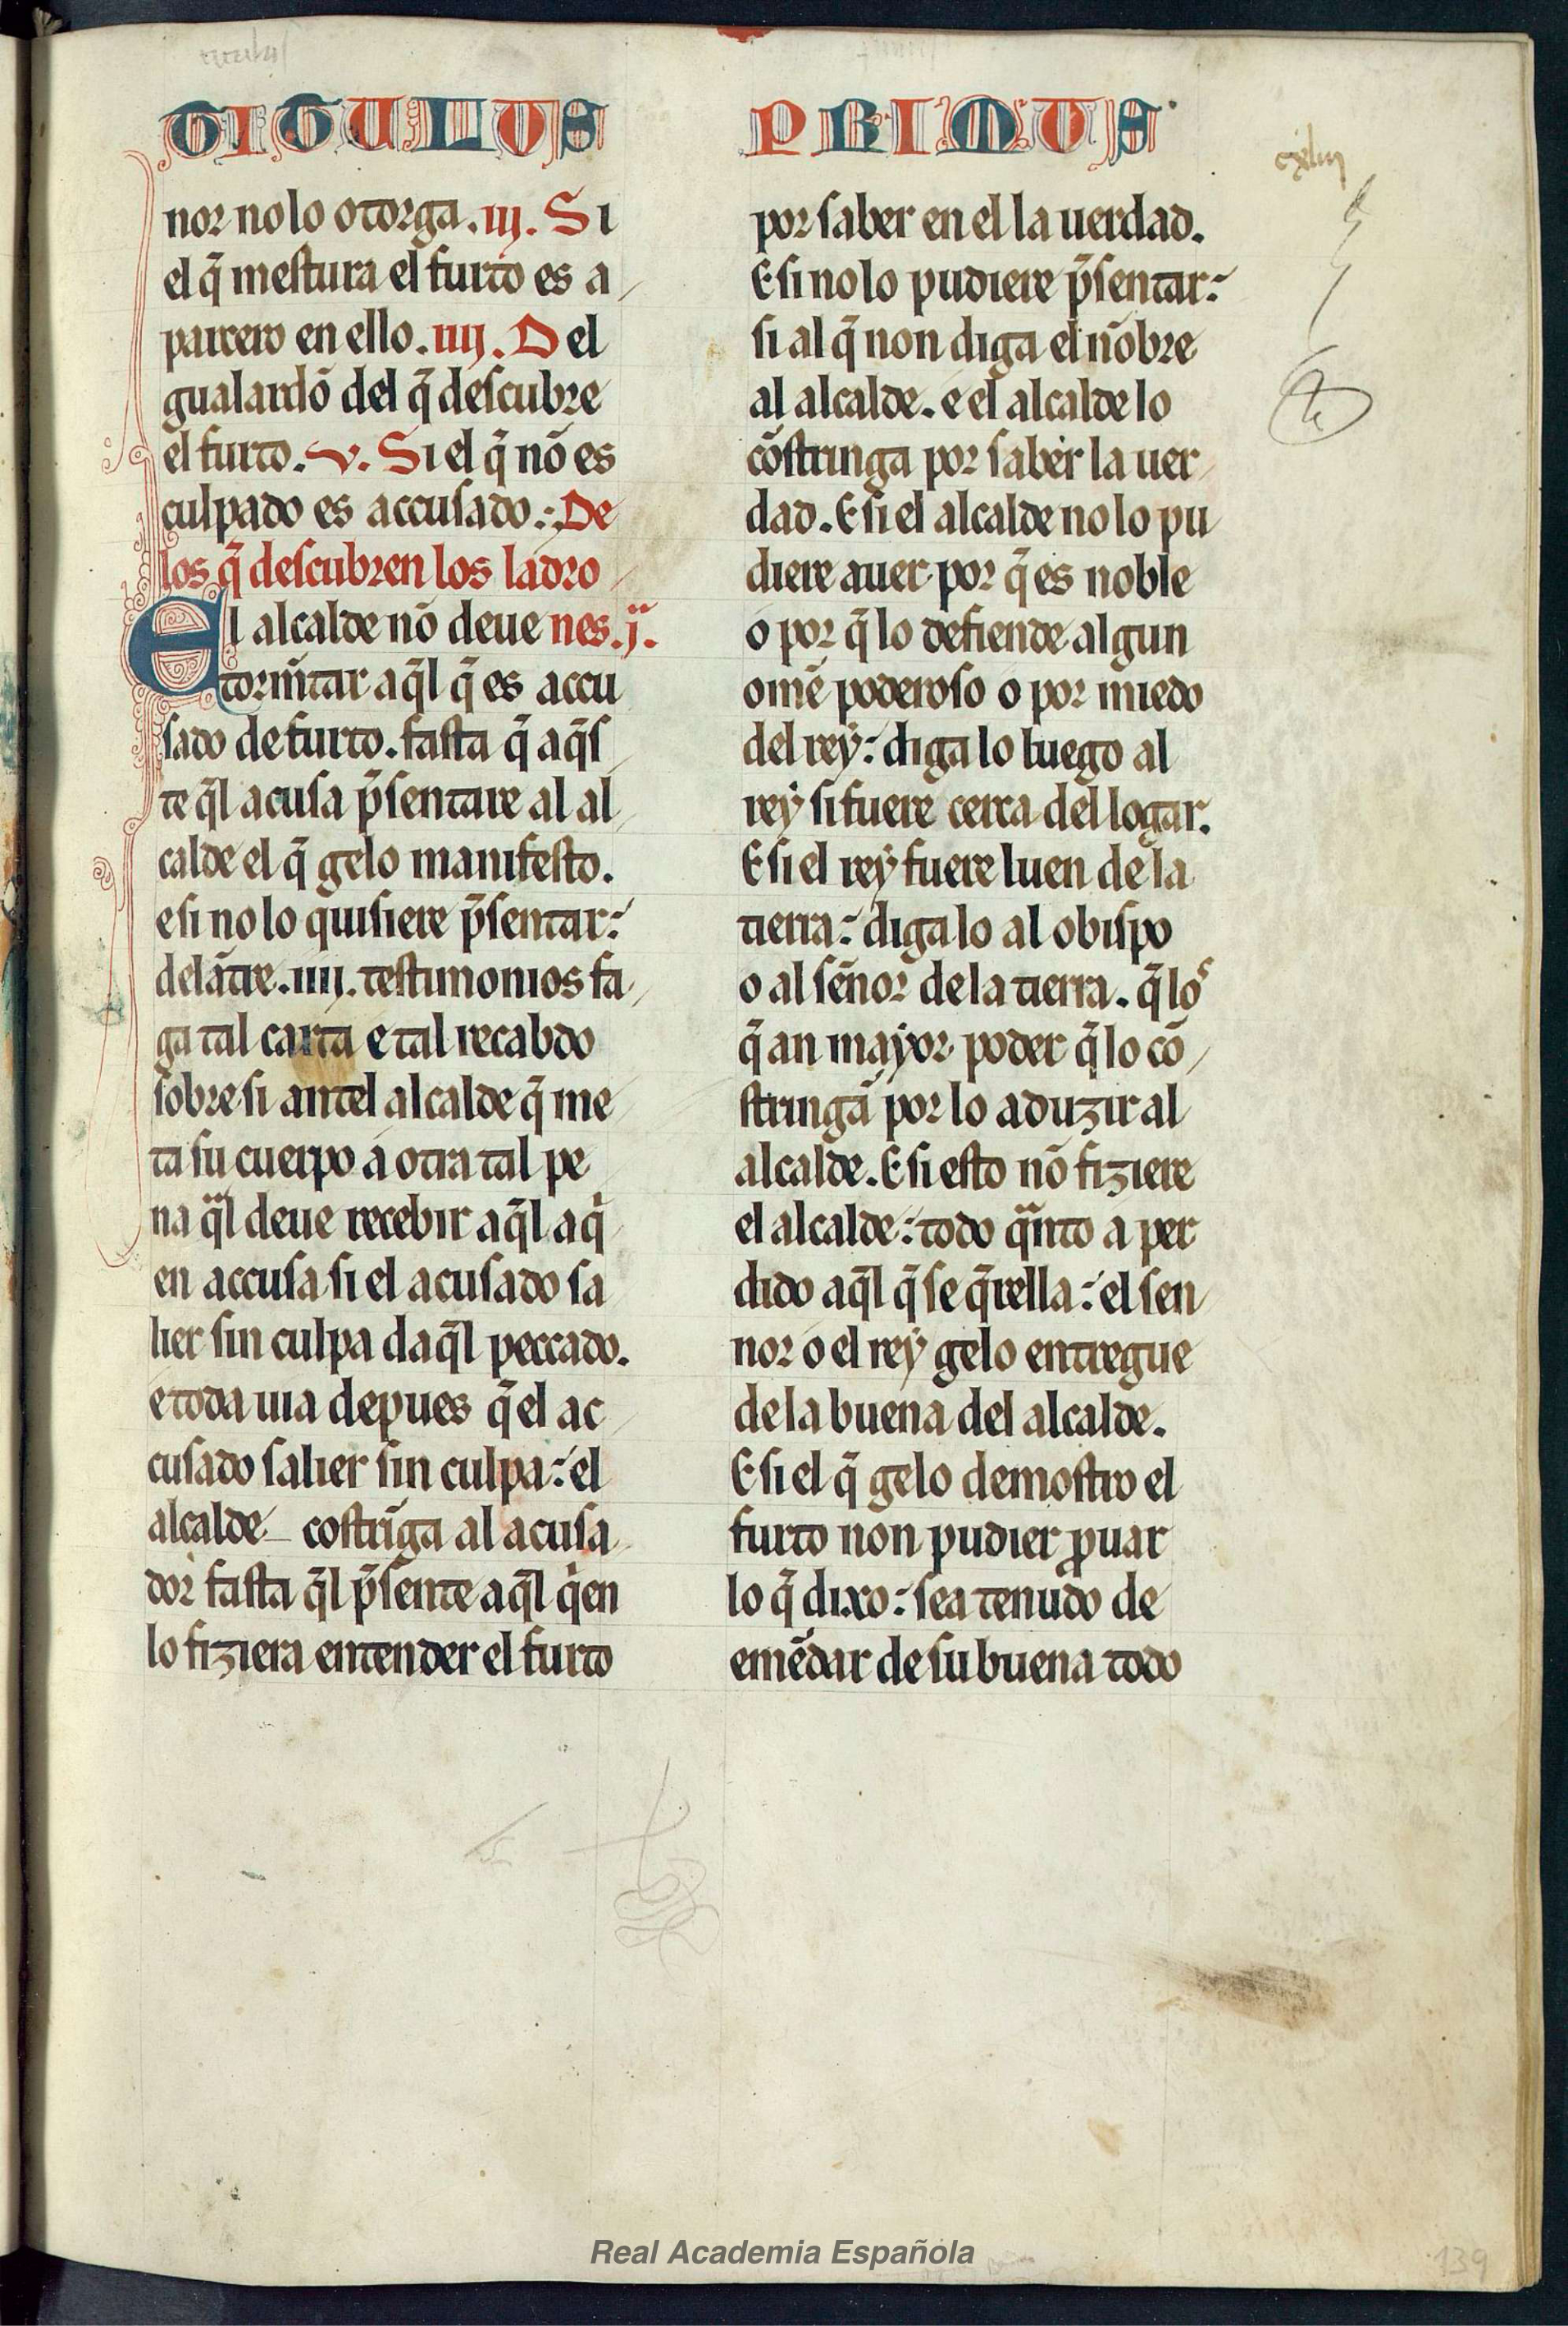 TITULUS PRIMUS
nor no lo otorga. iij. Si
el q̄ mestura el furto es a
parcero en ello. iiij. Del
gualardō del q̄ descubre
el furto. v. Si el q̄ nō es
culpado es accusado. De
los q̄ descubren los ladro
El alcalde nō deue nes. j.
tormētar aq̄l q̄ es accu
sado de furto. fasta q̄ aq̄s
te q̄l acusa p̄sentare al al
calde el q̄ gelo manifesto.
e si no lo quisiere p̄sentar:
delātre. iiij. testimonios fa
ga tal carta e tal recabdo
sobre si antel alcalde q̄ me
ta su cuerpo a otra tal pe
na q̄l deue recebir aq̄l a q̄
en accusa si el acusado sa
lier sin culpa daq̄l peccado.
e toda uia depues q̄ el ac
cusado salier sin culpa: el
alcalde costrīga al acusa
dor fasta q̄l p̄sente aq̄l q̄en
lo fiziera entender el furto
por saber en el la uerdad.
E si no lo pudiere p̄sentar:
si al q̄ non diga el nōbre
al alcalde. e el alcalde lo
cōstringa por saber la uer
dad. E si el alcalde no lo pu
diere auer por q̄ es noble
o por q̄ lo defiende algun
omē poderoso o por miedo
del rey: diga lo luego al
rey si fuere cerca del logar.
E si el rey fuere luen de la
tierra: diga lo al obispo
o al sēnor de la tierra. q̄ los
q̄ an mayor poder q̄ lo cō
stringā por lo aduzir al
alcalde. E si esto nō fiziere
el alcalde: todo q̄nto a per
dido aq̄l q̄ se q̄rella: el sen
nor o el rey gelo entregue
de la buena del alcalde.
E si el q̄ gelo demostro el
furto non pudier ꝓuar
lo q̄ dixo: sea tenudo de
emēdar de su buena todo
Real Academia Española
139